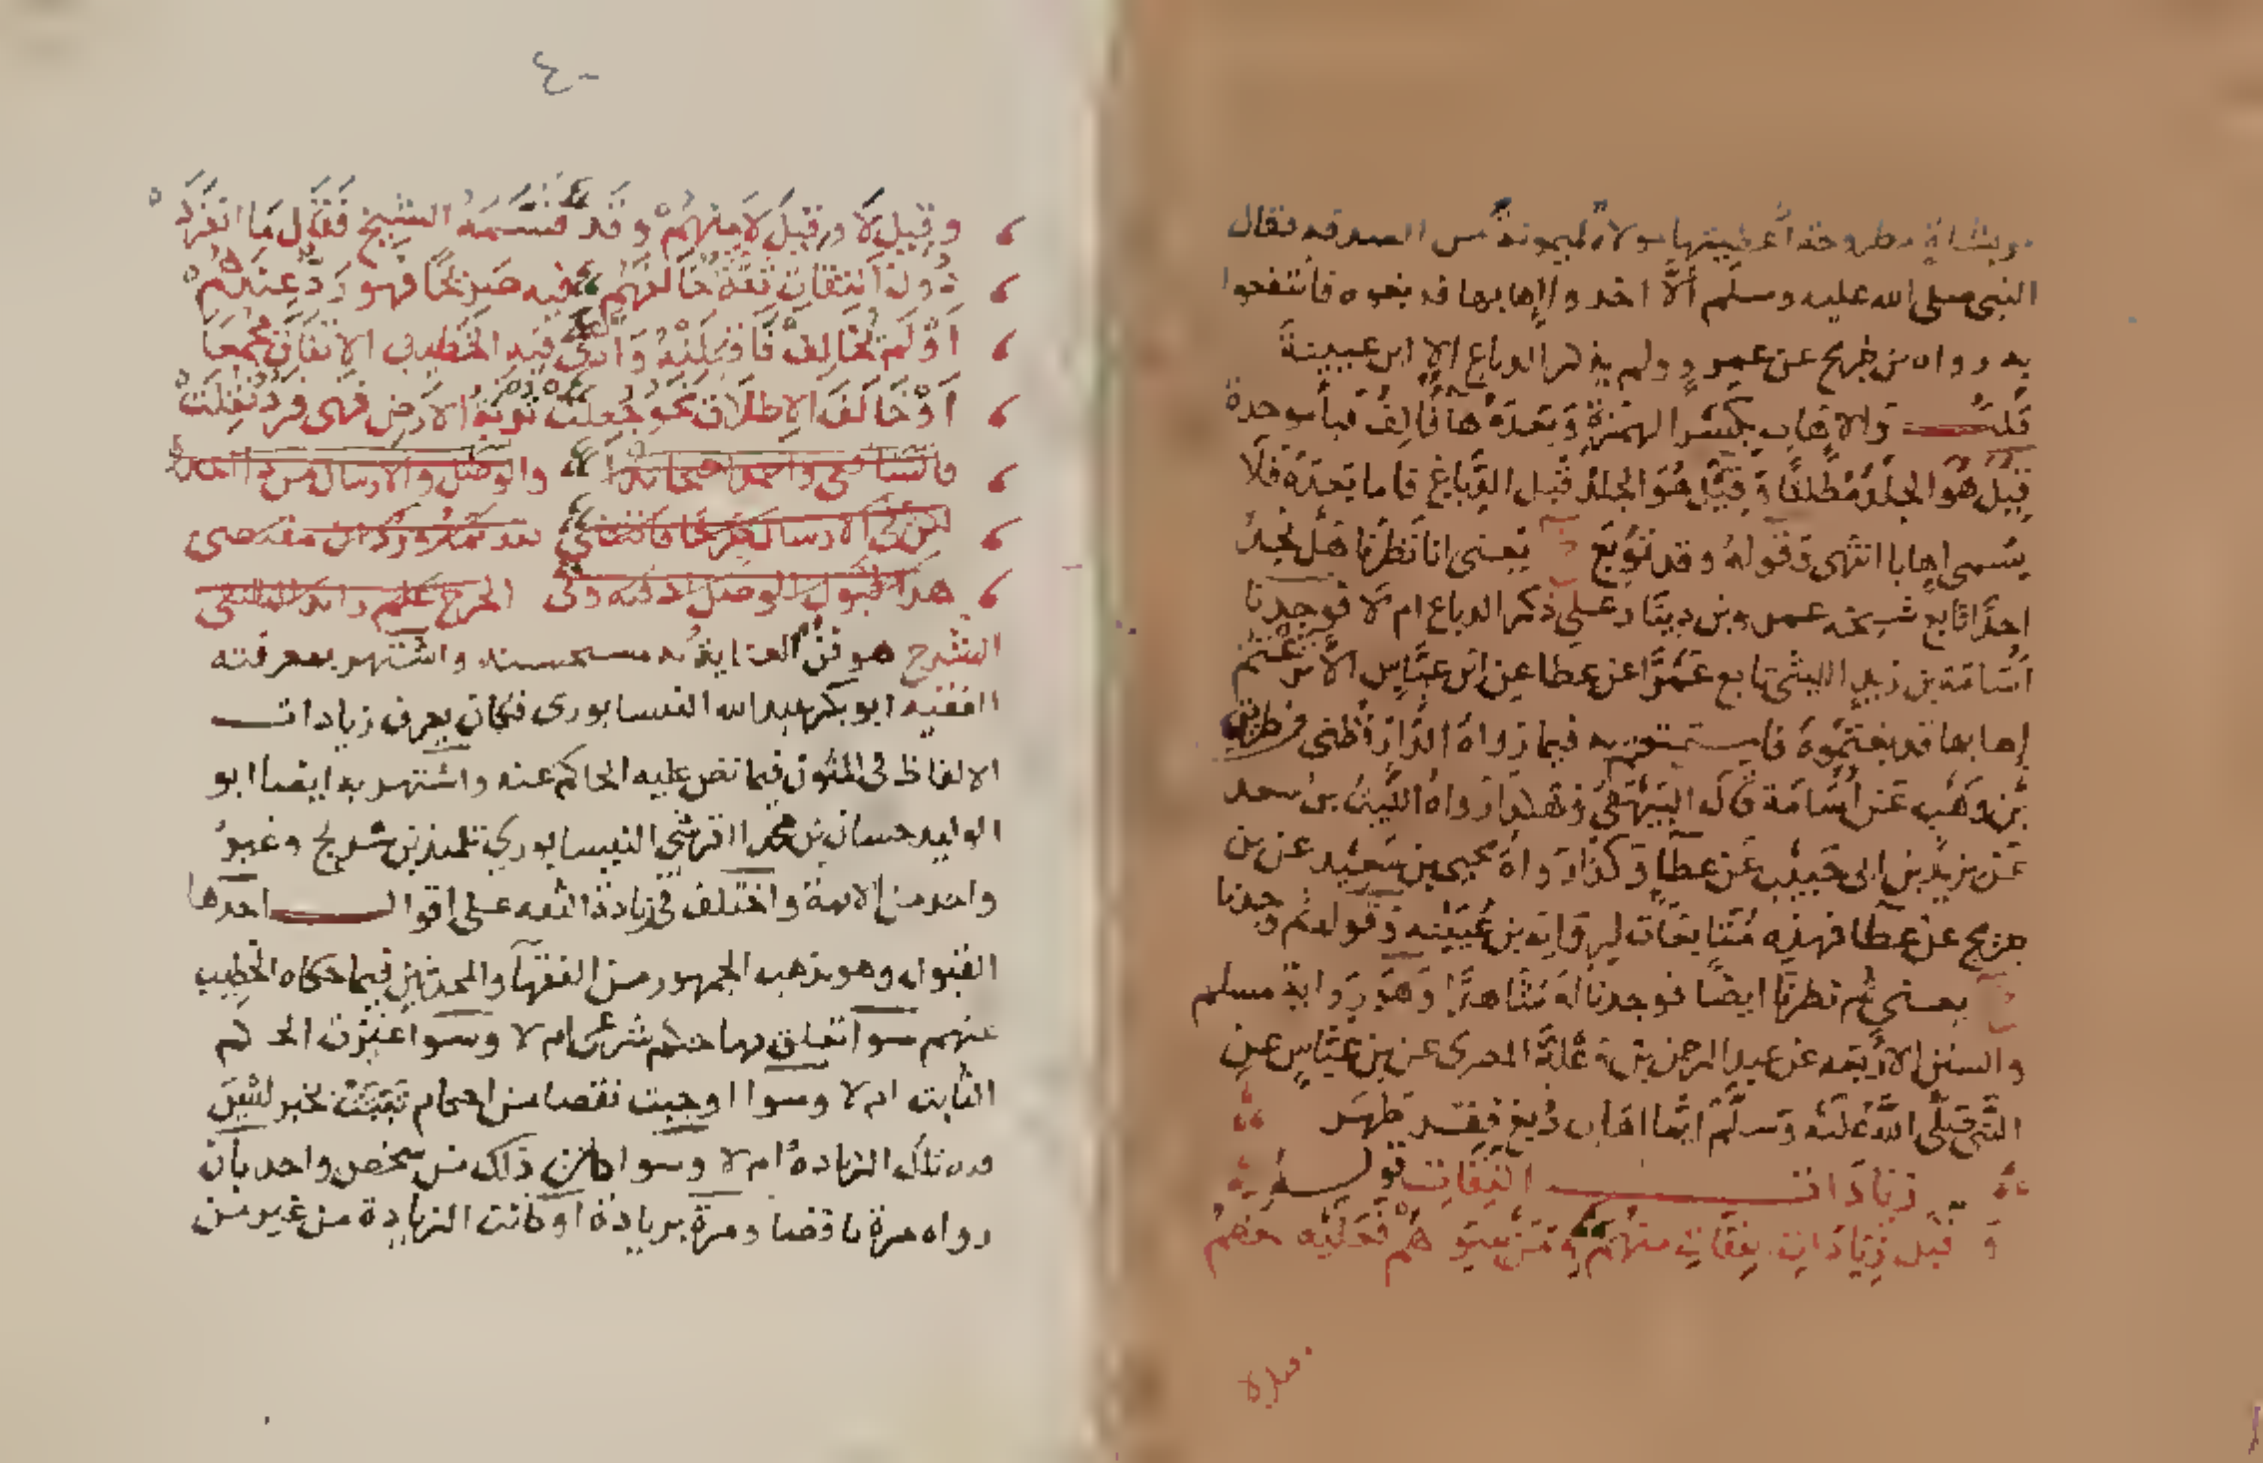 مر بشاة مطروحة أعطيتها مولاة لميمونة من الصدقه فقال
النبي صلى الله عليه وسلم ألا اخذوا إهابها فدبغوه فانتفعوا
به رواه بن جريج عن عمرو ولم يذكر الدباغ الا ابن عيينة
قلت والإهاب بكسر الهمزة وبعده هاء فألف فباء موحدة
قيل هو الجلد مطلقا وقيل هو الجلد قبل الدباغ فاما بعده فلا
يسمى إهابا انتهى وقوله وقد توبع يعني انا نظرنا هل نجد
احدا تابع شيخه عمرو بن دينار على ذكر الدباغ ام لا فوجدنا
أسامة بن زيد الليثي تابع عمرا عن عطا عن ابن عباس الا نزعتم
إهابها فدبغتموه فاستمتعتم به فيما رواه الدارقطني من طريق
بن وهب عن أسامة قال البيهقي وهكذا رواه الليث بن سعد
عن يزيد بن ابي حبيب عن عطاء وكذا رواه يحيى بن سعيد عن بن
جريج عن عطا فهذه متابعات لرواية بن عيينه وقوله ثم وجدنا
يعني ثم نظرنا ايضا فوجدنا له شاهدا وهو رواية مسلم
والسنن الاربعه عن عبد الرحمن بن وعلة المصري عن بن عباس عن
النبي صلى الله عليه وسلم ايما اهاب دبغ فقد طهر
زيادات الثقات قوله
و قبل زيادات ثقات منهم ومن سواهم فعليه معظم
وقيل لا
٤٠
وقيل لا وقيل لا منهم وقد قسمه الشيخ فقال ما انفرد
دون الثقات ثقة خالفهم فيه صريحا فهو رد عندهم
أو لم يخالف فاقبلنه وادعى فيه الخطيب الاتفاق مجمعا
أو خالف الاطلاق نحو جعلت تربة الارض فهي فرد نقلت
فالشافعي واحمد احتجا بذا والوصل والارسال من ذا اخذا
لكن في الارسال جرحا فاقتضى تقديمه ورد ان مقتضى
هذا قبول الوصل اذ فيه وفي الجرح علم زائد للمقتفي
الشرح هو فن العناية به مستحسنه واشتهر بمعرفته
الفقيه ابو بكر عبد الله النيسابوري فكان يعرف زيادات
الالفاظ في المتون فيما نص عليه الحاكم عنه واشتهر به ايضا ابو
الوليد حسان بن محمد القرشي النيسابوري تلميذ بن شريح وغير
واحد من الايمة واختلف في زيادة الثقه على اقوال احدها
القبول وهو مذهب الجمهور من الفقهاء والمحدثين فيما حكاه الخطيب
عنهم سوا تعلق بها حكم شرعي ام لا وسوا غيرت الحكم
الثابت ام لا وسوا اوجبت نقصا من احكام تثبت بخبر ليس
فيه تلك الزياده ام لا وسوا كان ذلك من شخص واحد بأن
رواه مرة ناقصا ومرة بزيادة او كانت الزيادة من غير من